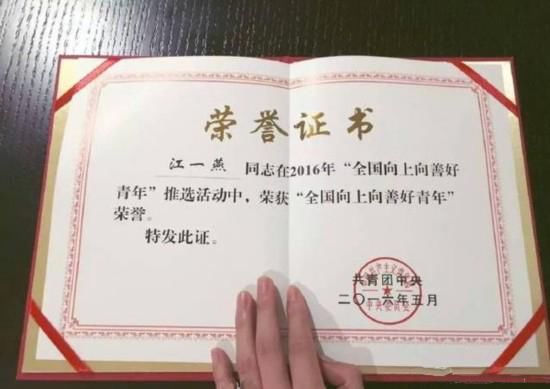 荣誉证书
江一燕 同志在2016年“全国向上向善好
青年”推选活动中，荣获“全国向上向善好青年”
荣誉。
特发此证。
共青团中央
二〇一六年五月